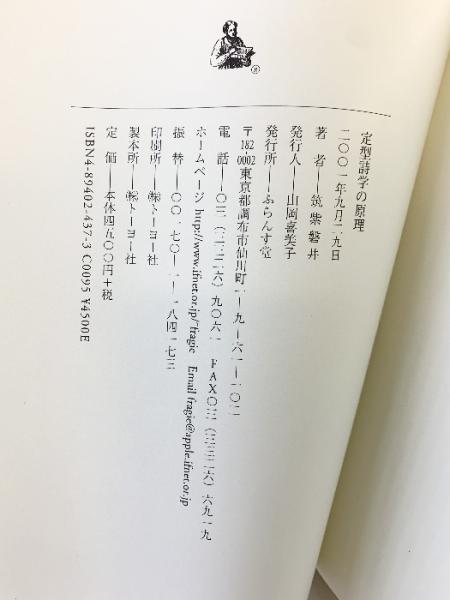 定型詩学の原理
二〇〇一年九月二九日
著 者——筑紫磐井
発行人——山岡喜美子
発行所——ふらんす堂
〒182-0002 東京都調布市仙川町一—九—六一—一〇二
電 話——〇三(三三二六)九〇六一 FAX〇三(三三二六)六九一九
ホームページ http://www.ifnet.or.jp/~fragie Email fragie@apple.ifnet.or.jp
振 替——〇〇一七〇—一—一八四一七三
印刷所——㈱トーヨー社
製本所——㈱トーヨー社
定 価——本体四五〇〇円+税
ISBN4-89402-437-3 C0095 ¥4500E